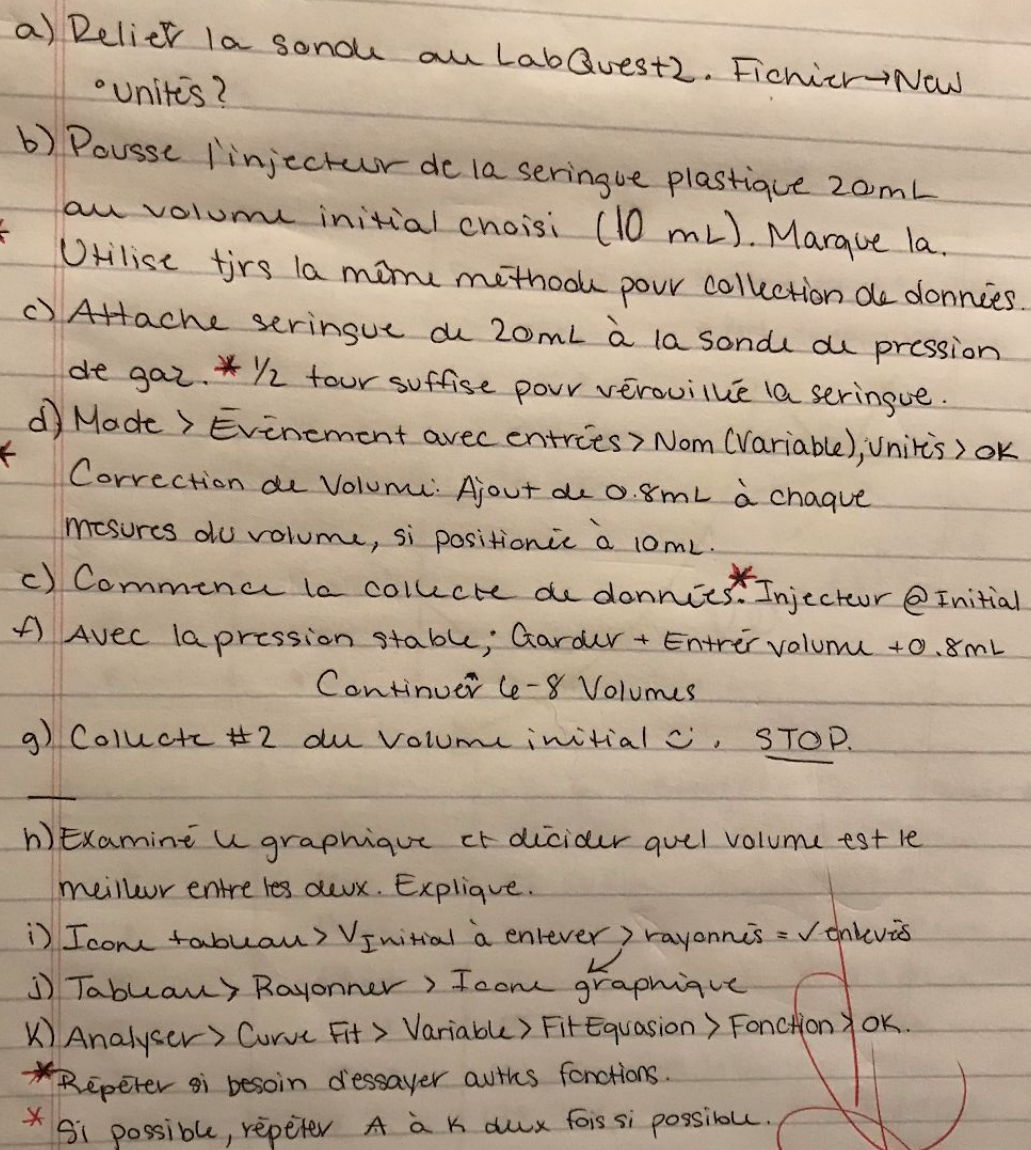 a) Relier la sonde au LabQuest2. Fichier→New
°Unités?
b) Pousse l'injecteur de la seringue plastique 20mL
au volume initial choisi (10 mL). Marque la.
Utilise tjrs la même méthode pour collection de données.
c) Attache seringue de 20mL à la sonde de pression
de gaz. * 1/2 tour suffise pour vérouillée la seringue.
d) Mode > Évènement avec entrées > Nom (Variable), Unités > OK
Correction de Volume: Ajout de 0.8mL à chaque
mesures du volume, si positionée à 10mL.
e) Commence la collecte de données.* Injecteur @ Initial
f) Avec la pression stable; Garder + Entrér volume +0.8mL
Continuer 6-8 Volumes
g) Collecte #2 du Volume initial ☺. STOP.
h) Examiné le graphique et décider quel volume est le
meilleur entre les deux. Explique.
i) Icone tableau > VInitial à enlever > rayonnés = √ enlevés
j) Tableau > Rayonner > Icone graphique
K) Analyser > Curve Fit > Variable > Fit Equasion > Fonction > OK.
* Répéter si besoin d'essayer autres fonctions.
* Si possible, répéter A à K deux fois si possible.